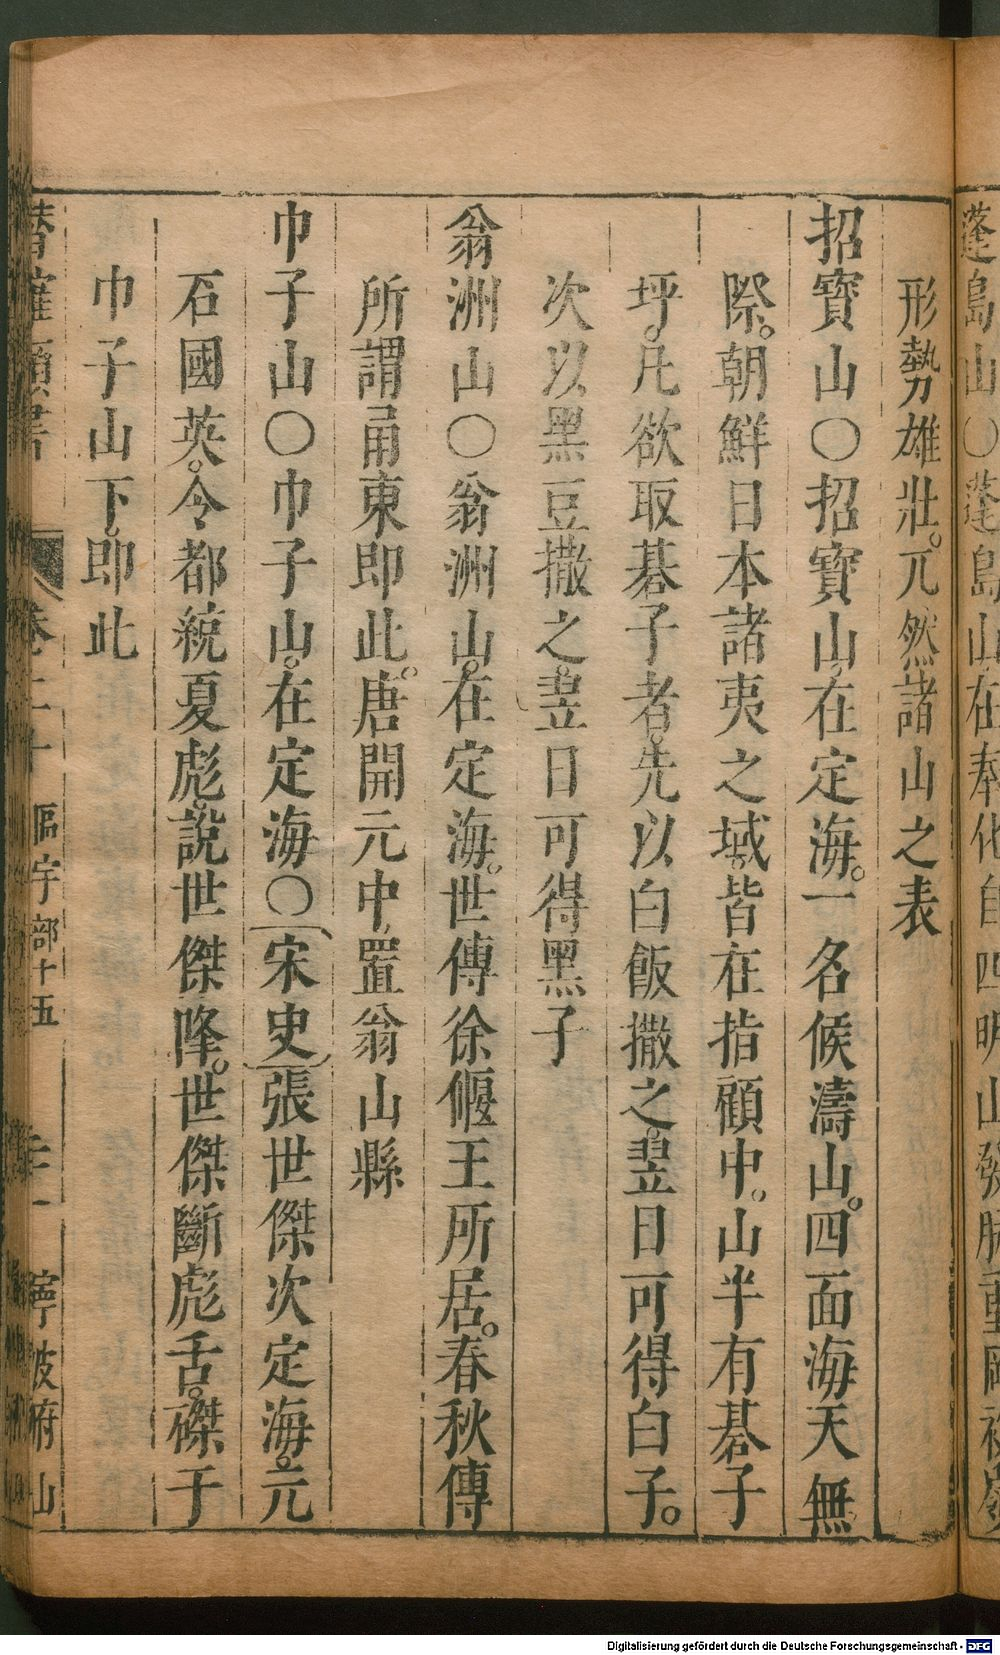 蓬島山〇蓬島山在奉化自四明山發脉重岡複嶺
形勢雄壯。兀然諸山之表
招寳山〇招寳山。在定海。一名候濤山。四面海天無
際。朝鮮日本諸夷之域。皆在指顧中。山半有碁子
坪。凡欲取碁子者。先以白飯撒之。翌日可得白子。
次以黑豆撒之。翌日可得黑子
翁洲山〇翁洲山。在定海。世傳徐偃王所居。春秋傳
所謂甬東即此。唐開元中。置翁山縣
巾子山〇巾子山。在定海〇宋史張世傑次定海。元
石國英。令都統夏彪。說世傑降。世傑斷彪舌。磔于
巾子山下。即此
潛確類書 卷二十 區宇部十五 寧波府山
Digitalisierung gefördert durch die Deutsche Forschungsgemeinschaft - DFG